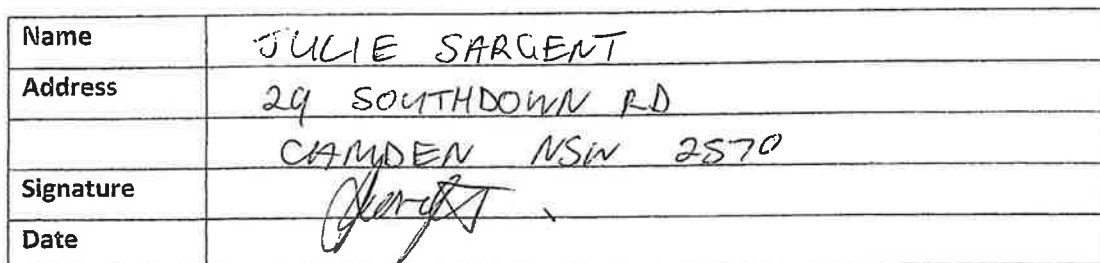 Name JULIE SARGENT
Address 29 SOUTHDOWN RD
CAMDEN NSW 2570
Signature
Date